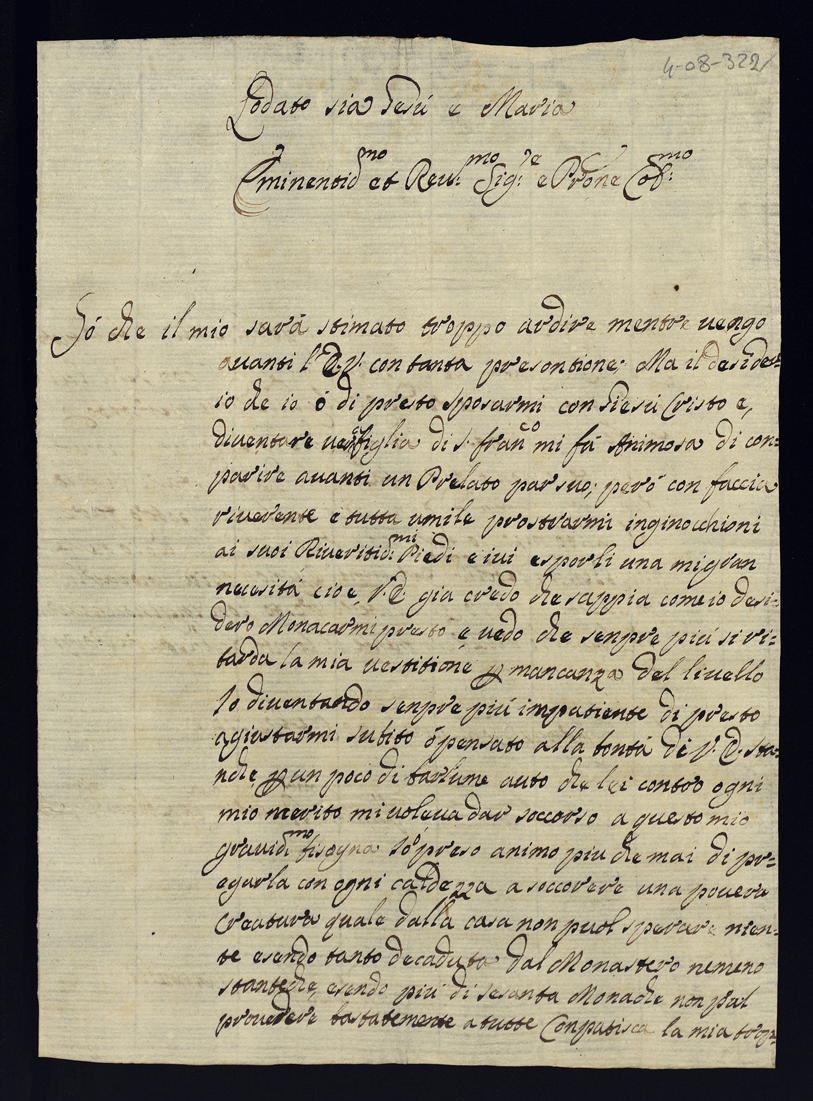 4-08-322
Lodato sia Gesù e Maria
Eminentis.mo et Reu.mo Sig.re e Prone Col.mo
Sò che il mio sarà stimato troppo ardire mentre uengo
auanti l' E.V. con tanta presontione; Ma il deside=
io che io ò di presto sposarmi con Giesù Cristo e,
diuentare uera figlia di S. Fran.co mi fà Animosa di con=
parire auanti un Prelato par suo; però con faccia
riuerente e tutta umile prostrarmi inginocchioni
ai suoi Riueritis.mi Piedi e iui esporli una mi gran
necesità cio e, V.E. gia credo che sappia come io desi=
dero Monacarmi presto e uedo che senpre più si ri=
tarda la mia uestitione p mancanza del liuello
Io diuentando senpre più impatiente di presto
agiustarmi subito ò pensato alla bontà di V.E. sta=
nche, p un poco di barlume auto che lei contro ogni
mio merito mi uoleua dar soccorso a questo mio
grauis.mo bisogna Io ò preso animo piu che mai di pr=
egarla con ogni caldezza a soccorere una pouera
Creatura quale dalla casa non puol sperare nien=
te esendo tanto decaduta dal Monastero nemeno
stanteche, esendo più di sesanta Monache non p̃ual
prouedere, bastatemente a tutte Conpatisca la mia trop=